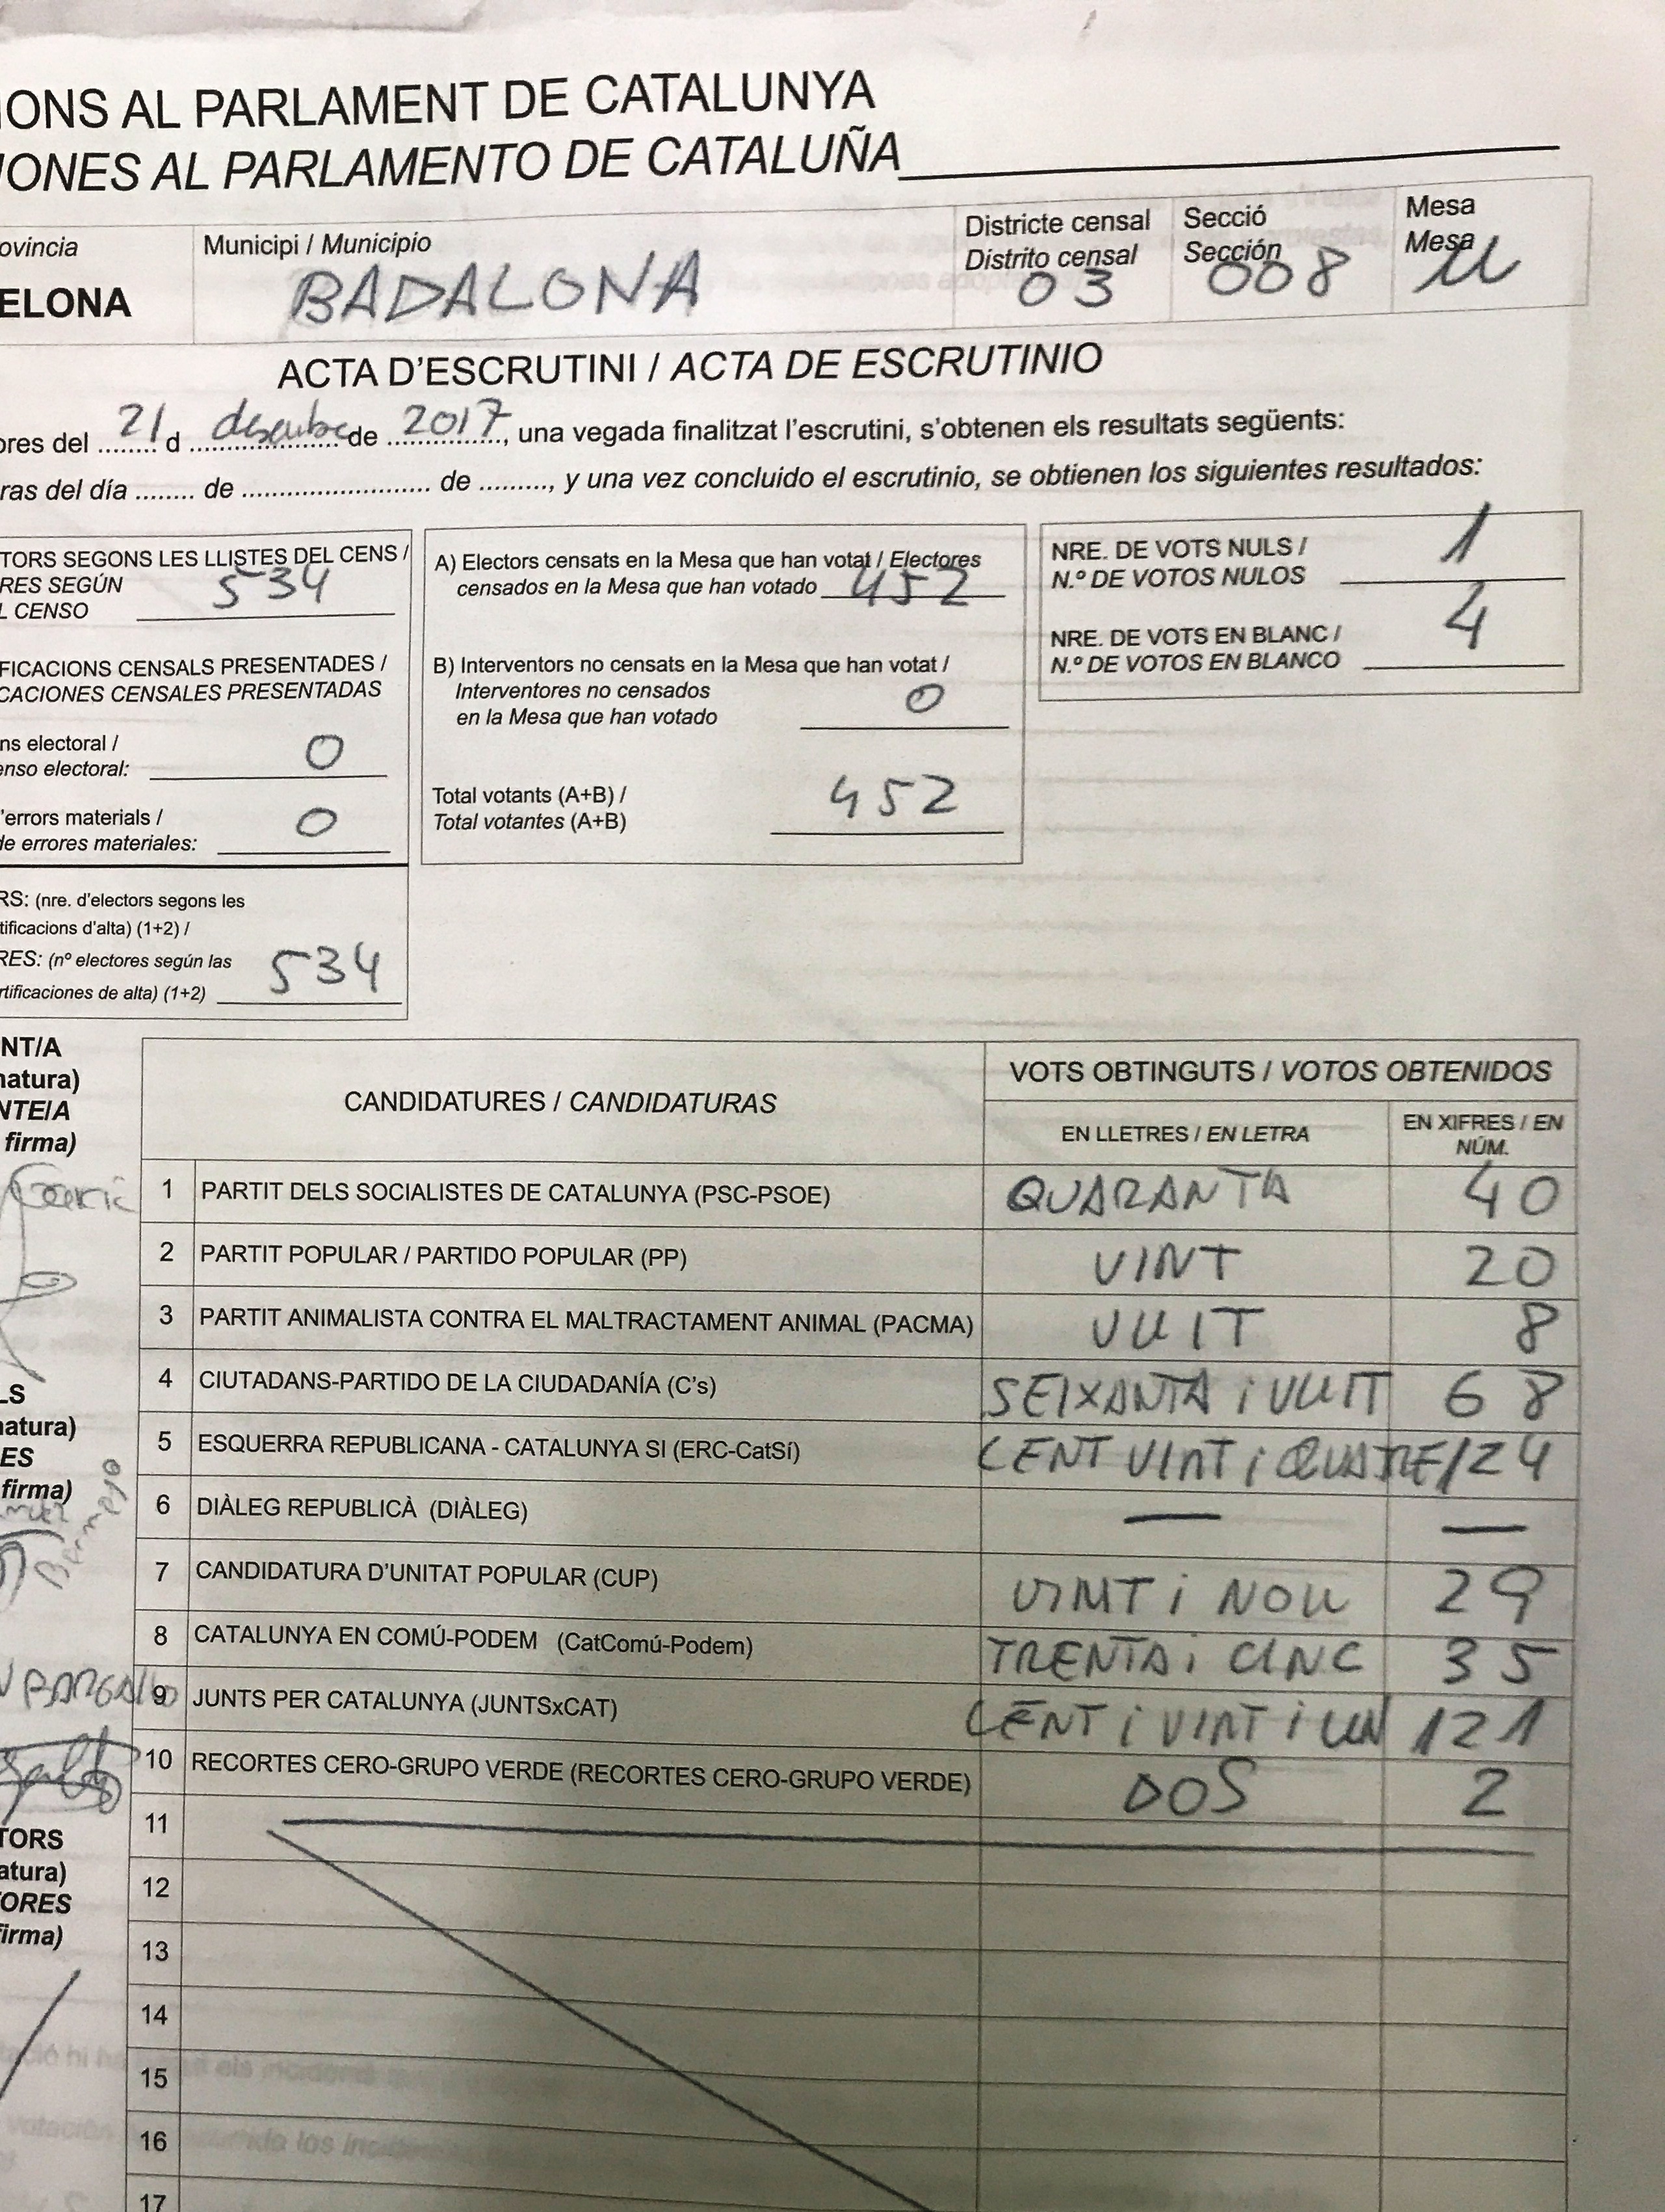 IONS AL PARLAMENT DE CATALUNYA
IONES AL PARLAMENTO DE CATALUÑA
ovincia
ELONA
Municipi / Municipio
BADALONA
Districte censal
Distrito censal
03
Secció
Sección
008
Mesa
Mesa
U
ACTA D'ESCRUTINI / ACTA DE ESCRUTINIO
ores del ........ 21 d ........ desembre de ........ 2017, una vegada finalitzat l'escrutini, s'obtenen els resultats següents:
ras del día ........ de ........ de ........, y una vez concluido el escrutinio, se obtienen los siguientes resultados:
TORS SEGONS LES LLISTES DEL CENS /
RES SEGÚN
L CENSO
534
FICACIONS CENSALS PRESENTADES /
CACIONES CENSALES PRESENTADAS
ns electoral /
enso electoral:
0
'errors materials /
le errores materiales:
0
RS: (nre. d'electors segons les
tificacions d'alta) (1+2) /
RES: (nº electores según las
rtificaciones de alta) (1+2)
534
A) Electors censats en la Mesa que han votat / Electores
censados en la Mesa que han votado
452
B) Interventors no censats en la Mesa que han votat /
Interventores no censados
en la Mesa que han votado
0
Total votants (A+B) /
Total votantes (A+B)
452
NRE. DE VOTS NULS /
N.º DE VOTOS NULOS
1
NRE. DE VOTS EN BLANC /
N.º DE VOTOS EN BLANCO
4
NT/A
natura)
NTE/A
firma)
LS
natura)
ES
firma)
TORS
atura)
TORES
firma)
CANDIDATURES / CANDIDATURAS
VOTS OBTINGUTS / VOTOS OBTENIDOS
EN LLETRES / EN LETRA
EN XIFRES / EN NÚM.
1 PARTIT DELS SOCIALISTES DE CATALUNYA (PSC-PSOE) QUARANTA 40
2 PARTIT POPULAR / PARTIDO POPULAR (PP) VINT 20
3 PARTIT ANIMALISTA CONTRA EL MALTRACTAMENT ANIMAL (PACMA) VUIT 8
4 CIUTADANS-PARTIDO DE LA CIUDADANÍA (C's) SEIXANTA i VUIT 68
5 ESQUERRA REPUBLICANA - CATALUNYA SI (ERC-CatSí) CENT VINT i QUATRE 124
6 DIÀLEG REPUBLICÀ (DIÀLEG) — —
7 CANDIDATURA D'UNITAT POPULAR (CUP) VINT i NOU 29
8 CATALUNYA EN COMÚ-PODEM (CatComú-Podem) TRENTA i CINC 35
9 JUNTS PER CATALUNYA (JUNTSxCAT) CENT i VINT i UN 121
10 RECORTES CERO-GRUPO VERDE (RECORTES CERO-GRUPO VERDE) DOS 2
11
12
13
14
15
16
17